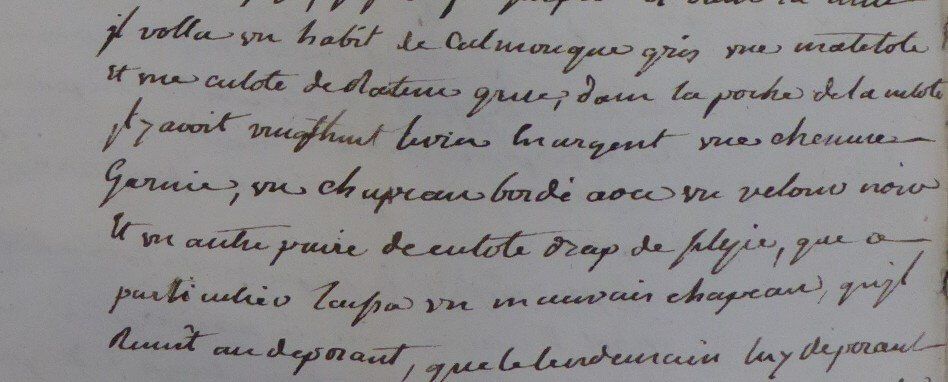 il volla un habit de Calmouque gris une matelote
Et une culote de Ratine grise, dans la poche de la culote
il y avoit vingthuit livres En argent une chemise
Garnie, un chapeau bordé avec un velour noir
Et un autre paire de culote drap de silesie, que ce
particulier laissa un mauvais chapeau, qu'il
Remit au deposant, que le lendemain luy deposant